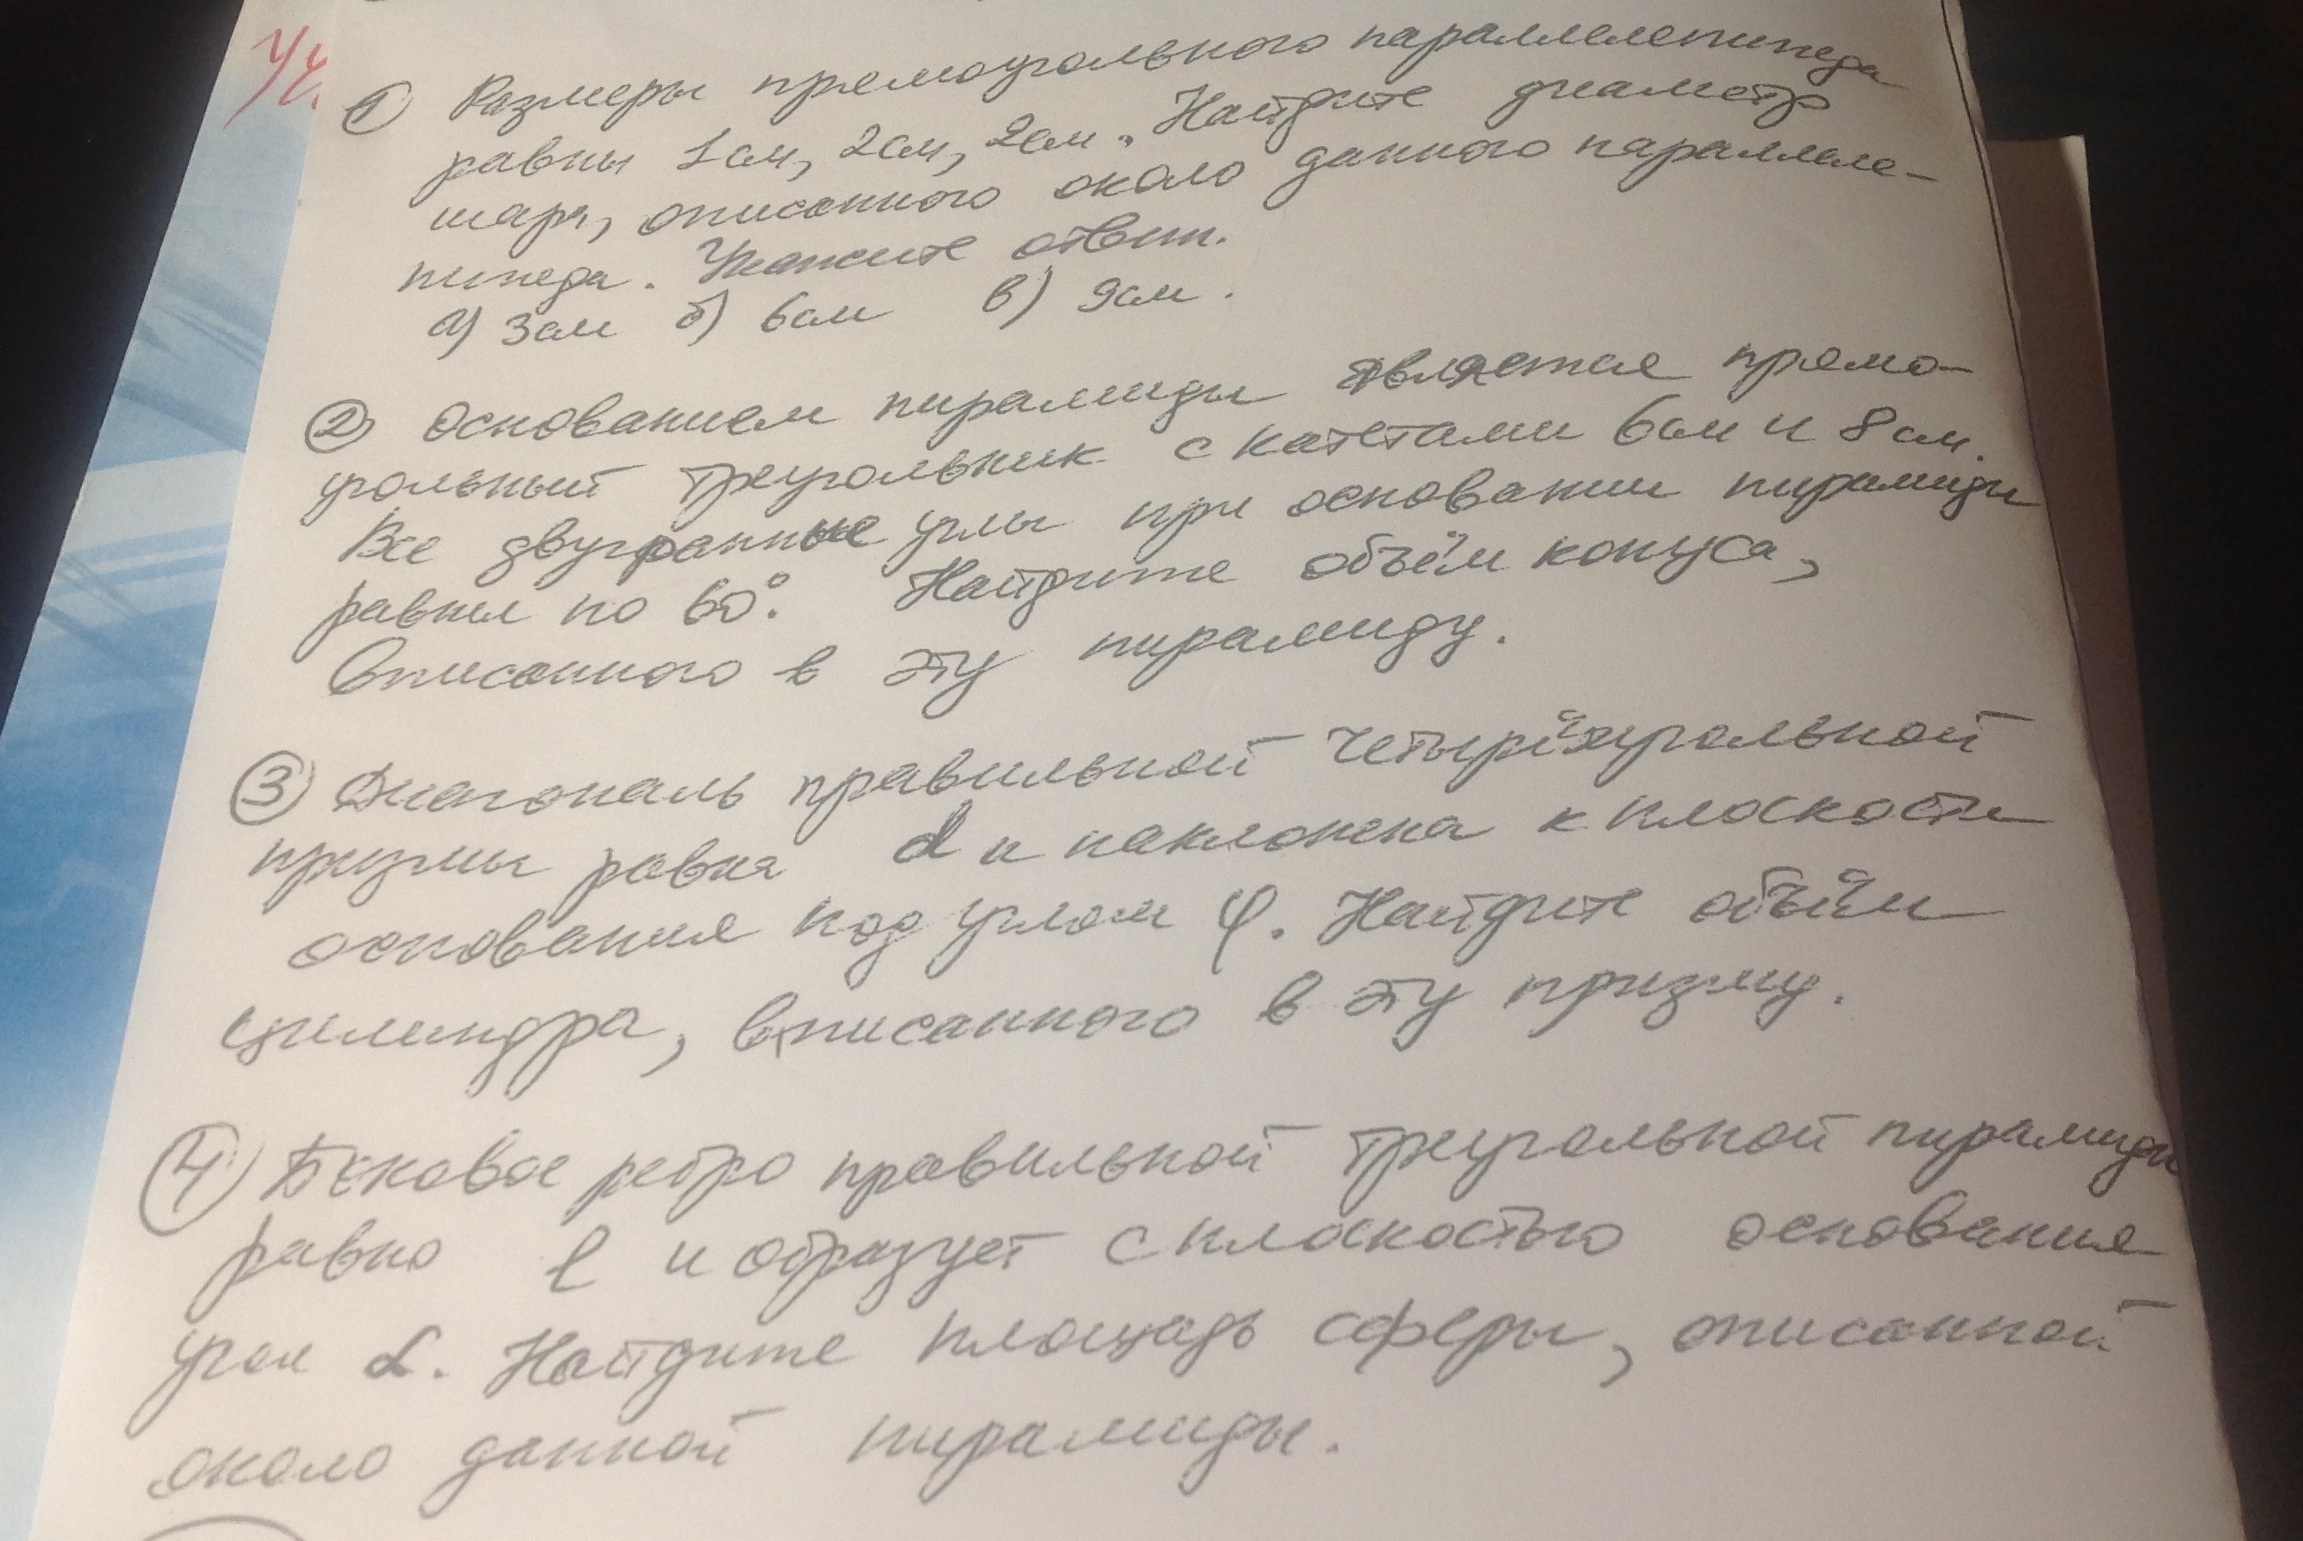 Уч.
① Размеры прямоугольного параллелепипеда
равны 1см, 2см, 2см. Найдите диаметр
шара, описанного около данного паралеле-
пипеда. Укажите ответ.
а) 3см б) 6см в) 9см.
② Основанием пирамиды является прямо-
угольный треугольник с катетами 6см и 8см.
Все двугранные углы при основании пирамиды
равны по 60°. Найдите объём конуса,
вписанного в эту пирамиду.
③ Диагональ правильной четырёхугольной
призмы равна d и наклонена к плоскости
основания под углом φ. Найдите объём
цилиндра, вписанного в эту призму.
④ Боковое ребро правильной треугольной пирамиды
равно l и образует с плоскостью основания
угол α. Найдите площадь сферы, описанной
около данной пирамиды.